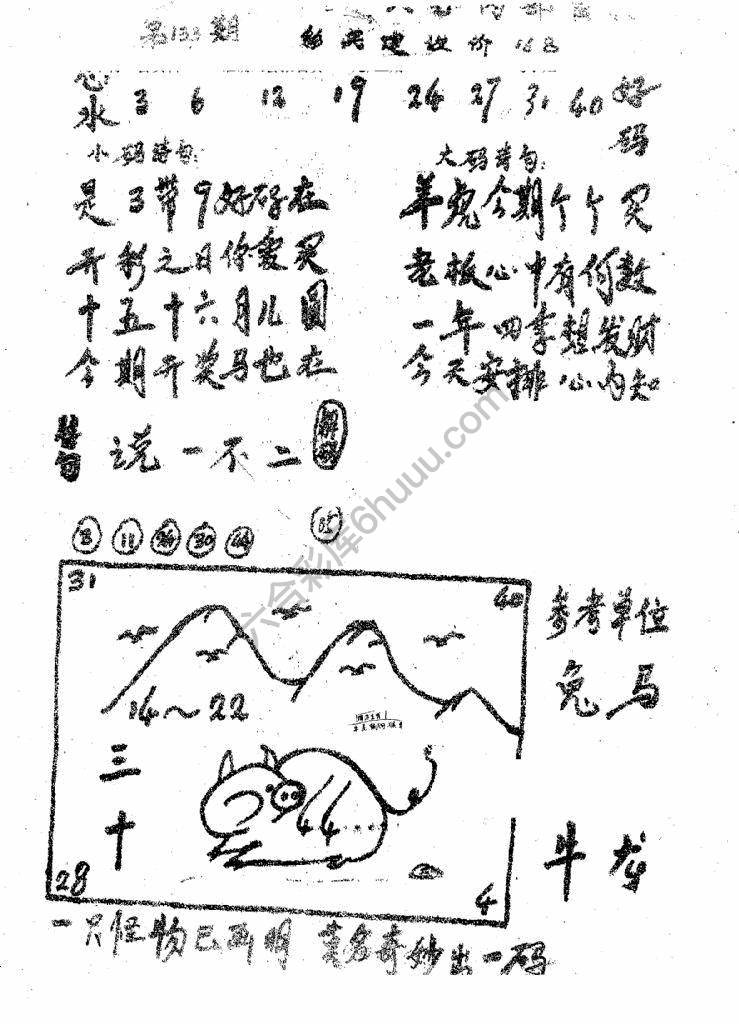 第133期
心水 3 6 12 19 24 27 31 40 好码
小码诗句:
是3带9好码在
开彩之日你爱买
十五十六月儿圆
今期开奖马也在
大码诗句:
羊虎今期个个买
老板心中有何数
一年四季想发财
今天安排心内知
说一不二
3 11 24 30 44 05
31 40
14~22
三十
44
28 4
参考单位
兔马
牛龙
一只怪物已画明 莫名奇妙出一码
六合彩库6huuu.com